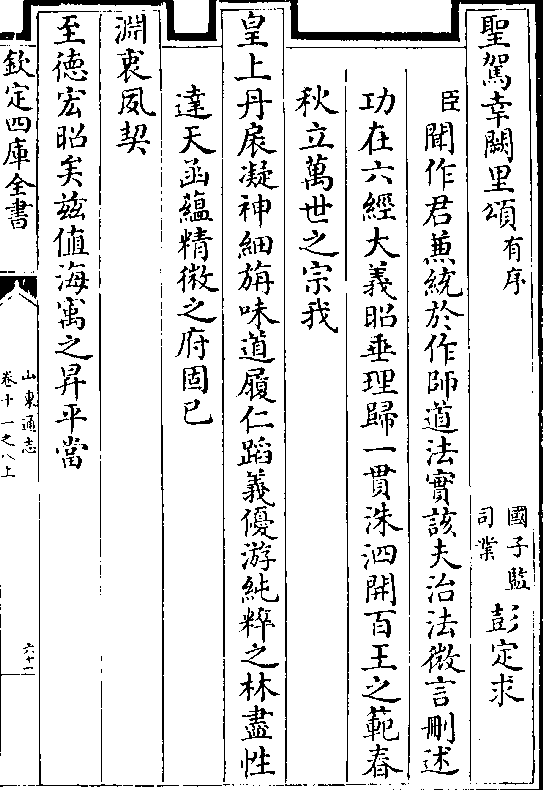 聖駕幸闕里頌有序 國子監司業 彭定求
臣聞作君兼統於作師道法實該夫治法微言刪述
功在六經大義昭垂理歸一貫洙泗開百王之範春
秋立萬世之宗我
皇上丹扆凝神細旃味道履仁蹈義優游純粹之林盡性
達天函蘊精微之府固已
淵衷夙契
至徳宏昭矣兹值海寓之昇平當
欽定四庫全書
山東通志
卷十一之八上
六十二